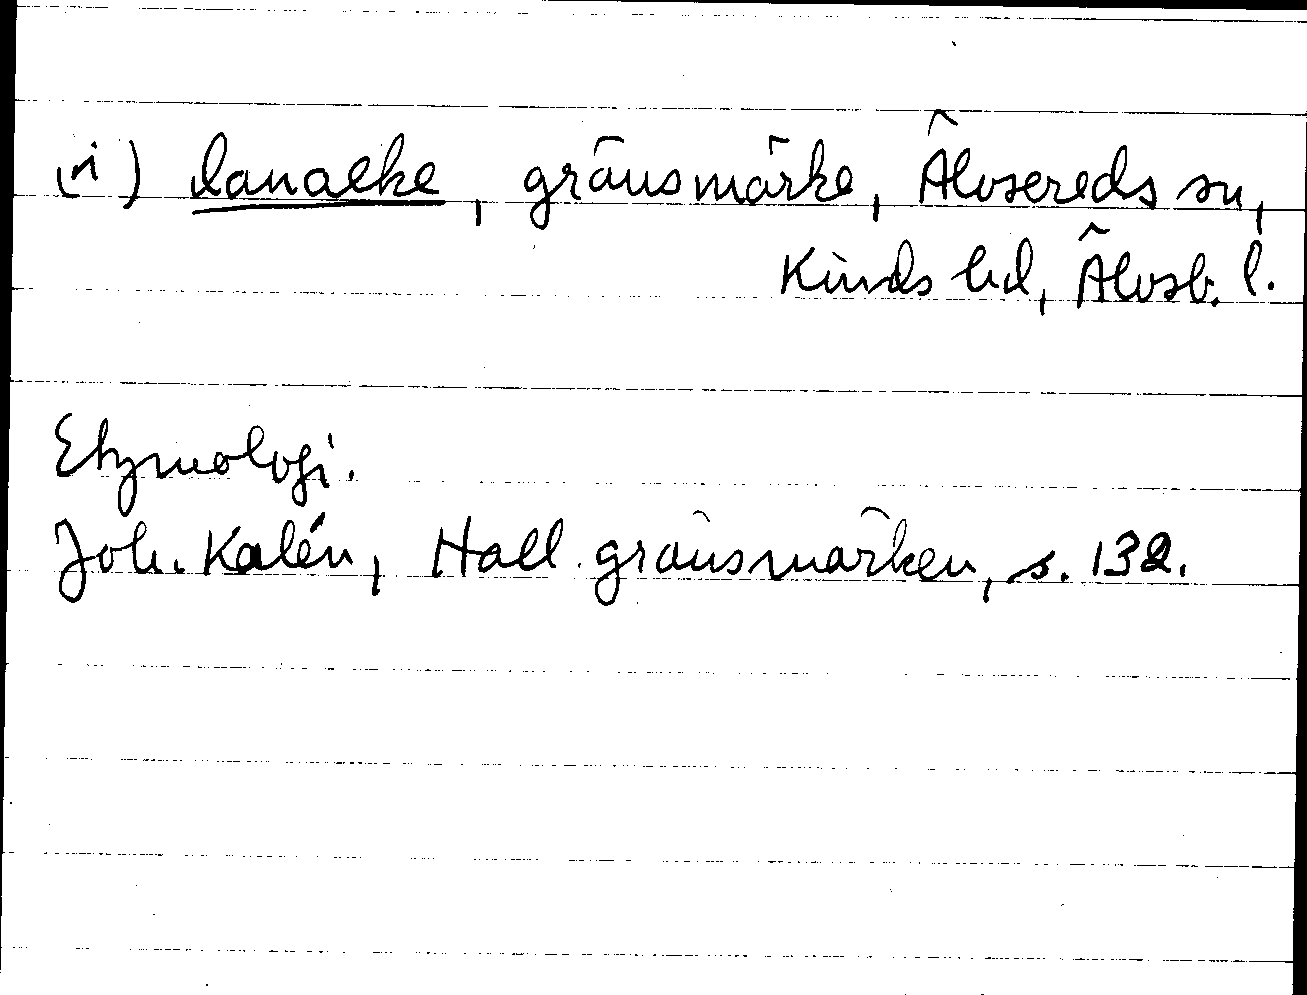 (i) lanaeke, gränsmärke, Älvsereds sn,
Kinds hd, Älvsb. l.
Etymologi.
Joh. Kalén, Hall. gränsmärken, s. 132.